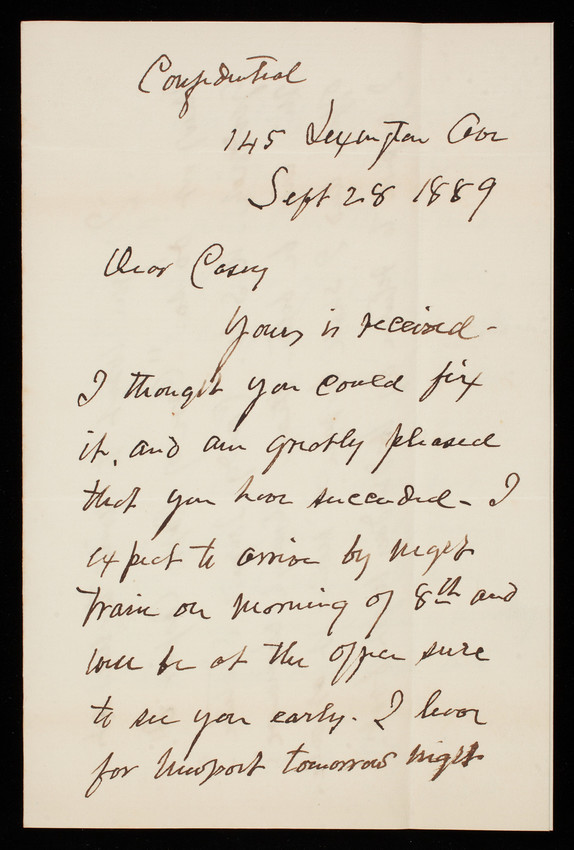 Confidential
145 Lexington Ave
Sept 28 1889
Dear Casey
Yours is received -
I thought you could fix
it, and am greatly pleased
that you have succeeded - I
expect to arrive by night
train on morning of 8th and
will be at the office sure
to see you early. I leave
for Newport tomorrow night